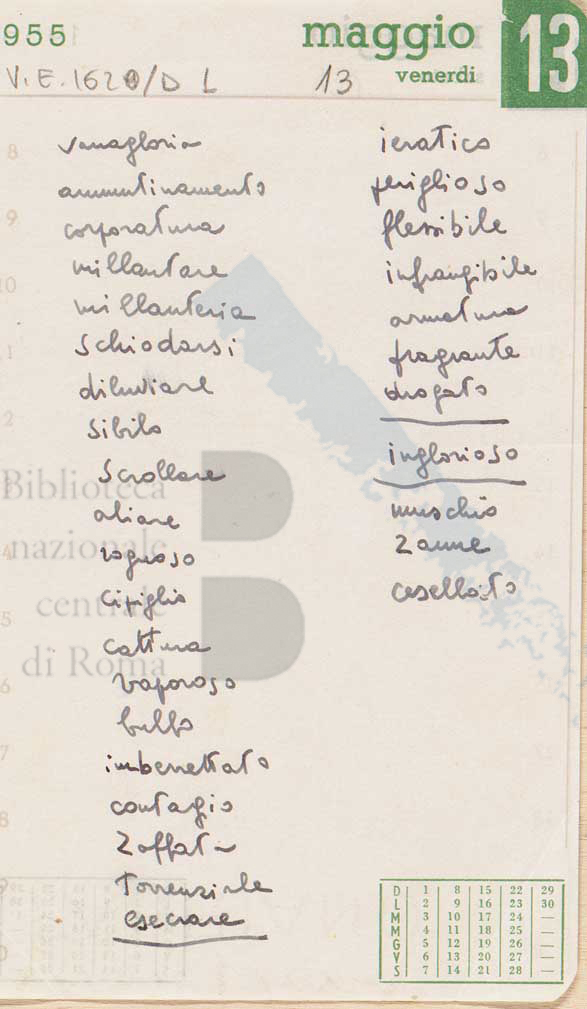 955
maggio
venerdi
13
V.E. 1620/D L 13
vanagloria
ammutinamento
corporatura
millantare
millanteria
schiodarsi
diluviare
sibilo
scrollare
aliare
rognoso
cipiglio
cattura
vaporoso
bullo
imberrettato
contagio
Zaffata
torrenziale
esecrare
ieratico
periglioso
flessibile
infrangibile
armatura
fragrante
drogato
inglorioso
muschio
Zanne
cesellato
Biblioteca
nazionale
centrale
di Roma
8
9
10
1
2
4
5
6
7
8
9
0
D 1 8 15 22 29
L 2 9 16 23 30
M 3 10 17 24 —
M 4 11 18 25 —
G 5 12 19 26 —
V 6 13 20 27 —
S 7 14 21 28 —